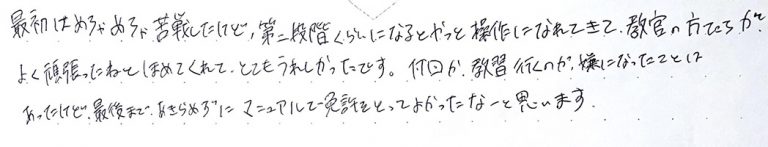 最初はめちゃめちゃ苦戦したけど、第二段階くらいになるとやっと操作になれてきて、教官の方たちが
よく頑張ったねとほめてくれて、とてもうれしかったです。何回か教習行くのが、嫌になったことは
あったけど、最後まであきらめずにマニュアルで免許をとってよかったなーと思います。